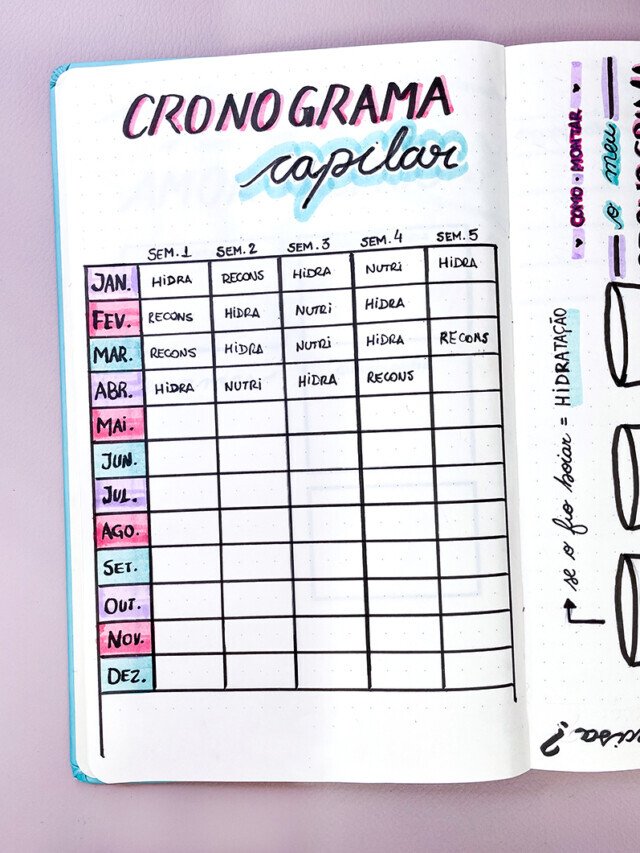 CRONOGRAMA
capilar
SEM. 1 SEM. 2 SEM. 3 SEM. 4 SEM. 5
JAN. HIDRA RECONS HIDRA NUTRI HIDRA
FEV. RECONS HIDRA NUTRI HIDRA
MAR. RECONS HIDRA NUTRI HIDRA RECONS
ABR. HIDRA NUTRI HIDRA RECONS
MAI.
JUN.
JUL.
AGO.
SET.
OUT.
NOV.
DEZ.
COMO • MONTAR
o meu
se o fio boiar = HIDRATAÇÃO